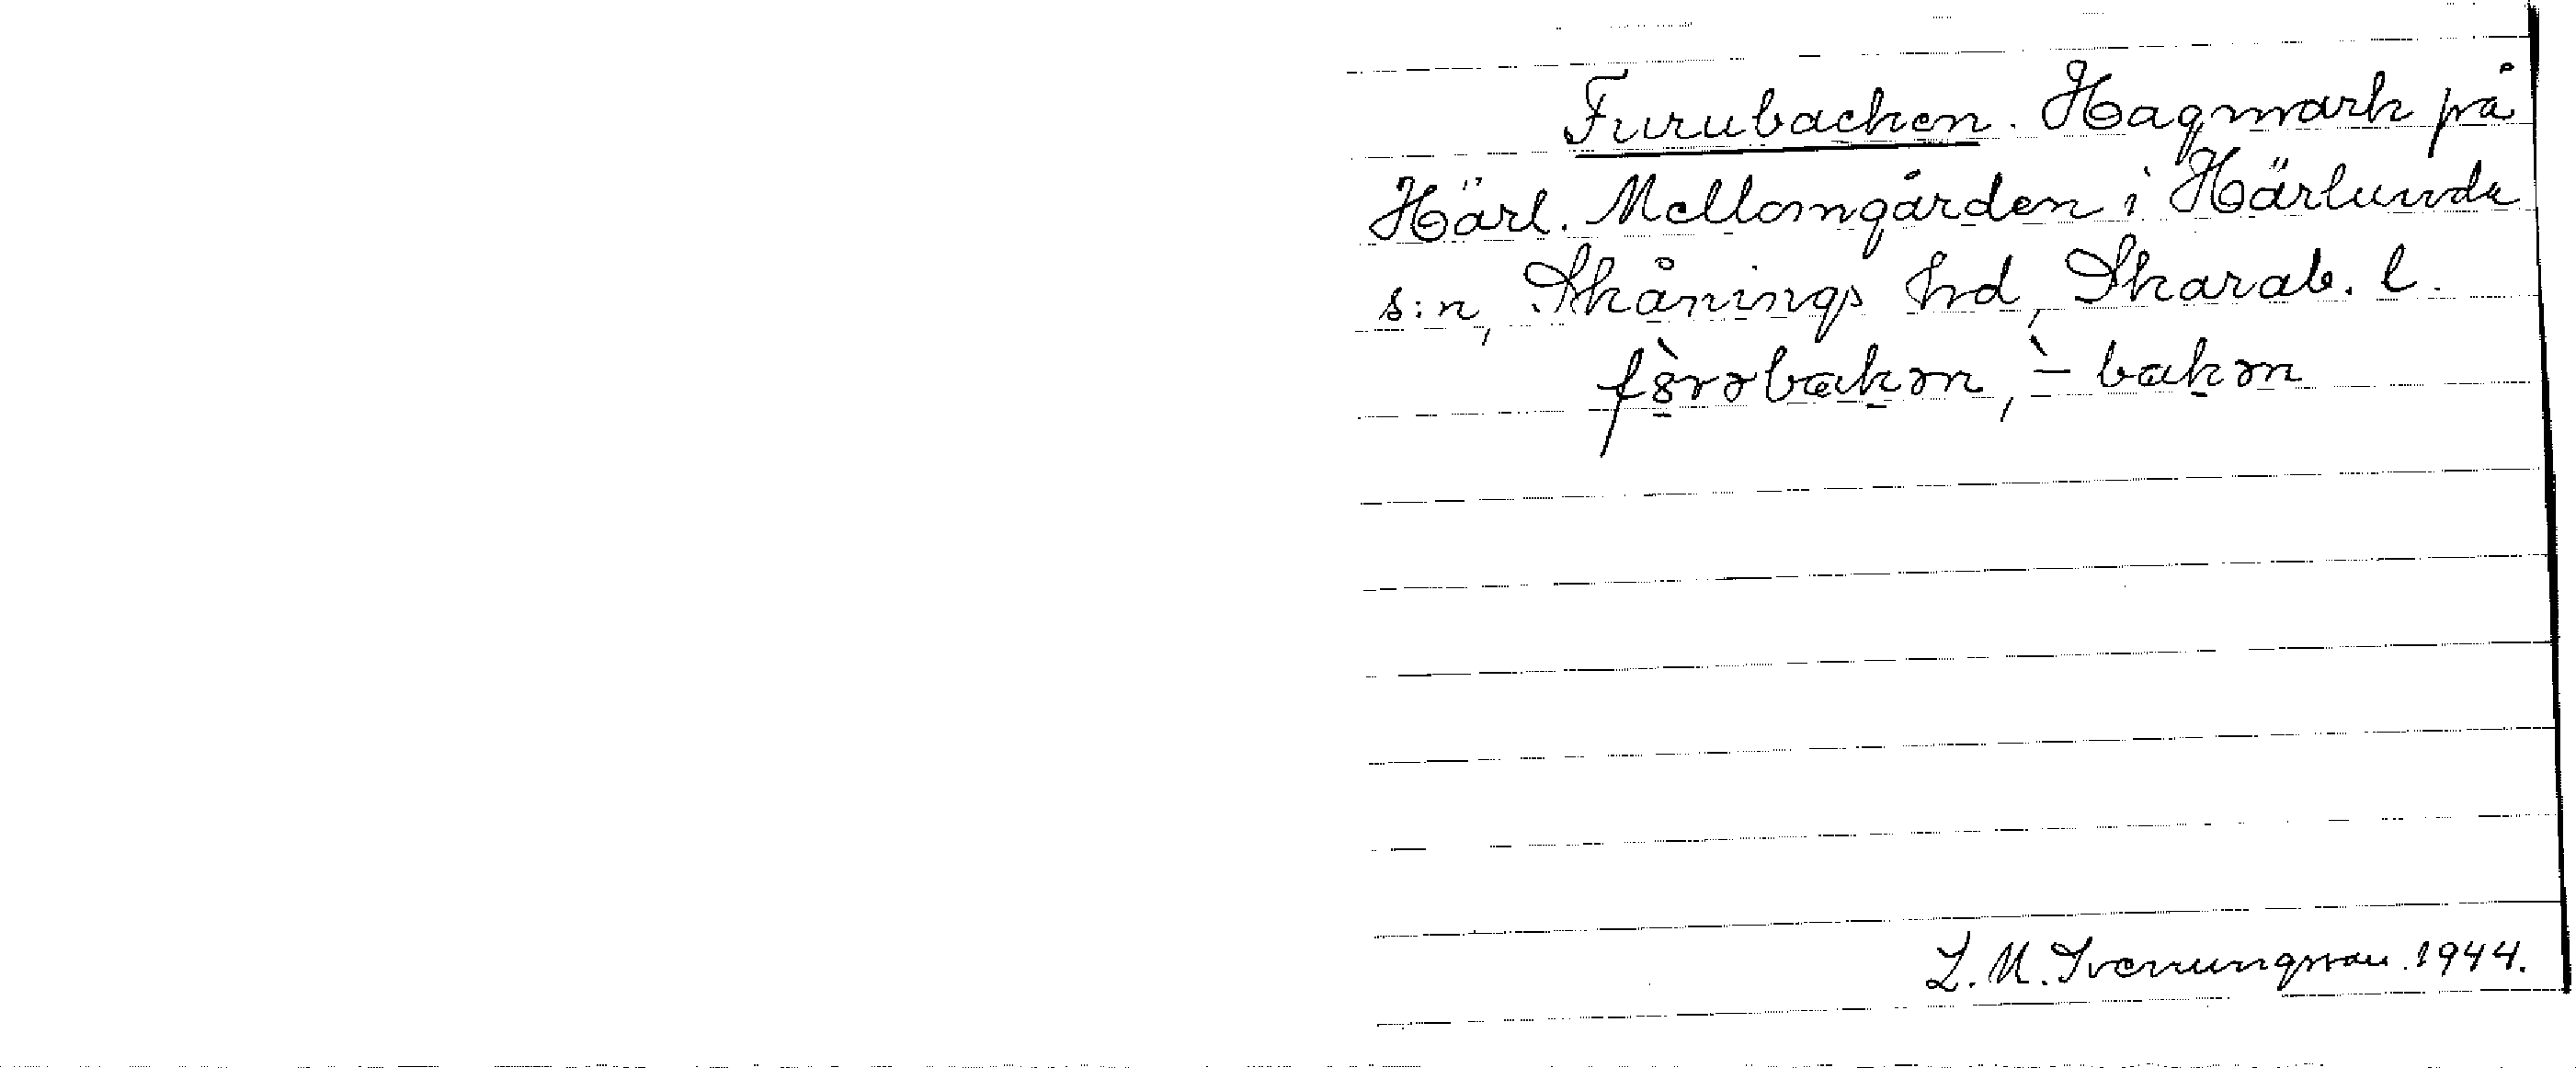 Furubacken. Hagmark på
Härl. Mellomgården i Härlunda
s:n, Skånings hd, Skarab. l.
L. M. Svenungsson. 1944.